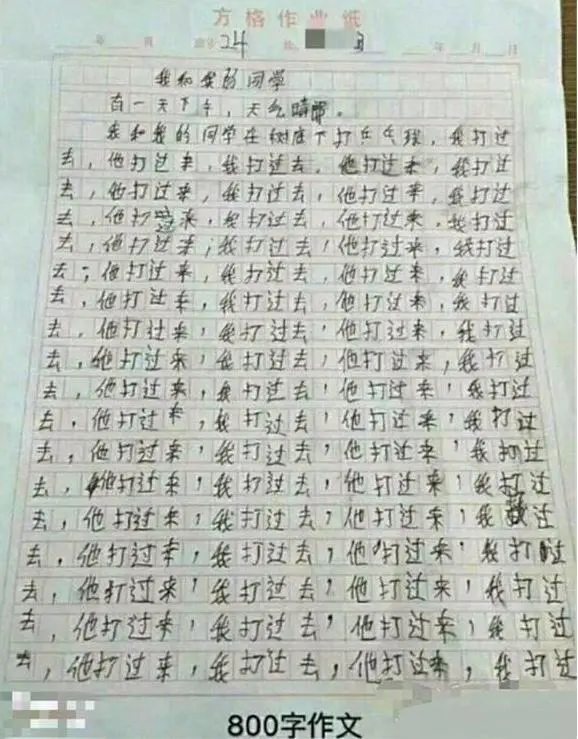 方格作业纸
年 月 24 号 年 月 日
我和我的同学
有一天下午，天气晴朗。
我和我的同学在树底下打乒乓球，我打过
去，他打过来，我打过去，他打过来，我打过
去，他打过来，我打过去，他打过来，我打过
去，他打过来，我打过去，他打过来，我打过
去，他打过来，我打过去，他打过来，我打过
去，他打过来，我打过去，他打过来，我打过
去，他打过来，我打过去，他打过来，我打过
去，他打过来，我打过去，他打过来，我打过
去，他打过来，我打过去，他打过来，我打过
去，他打过来，我打过去，他打过来，我打过
去，他打过来，我打过去，他打过来，我打过
去，他打过来，我打过去，他打过来，我打过
去，他打过来，我打过去，他打过来，我打过
去，他打过来，我打过去，他打过来，我过
去，他打过来，我打过去，他打过来，我打过
去，他打过来，我打过去，他打过来，我打过
去，他打过来，我打过去，他打过来，我打过
去，他打过来，我打过去，他打过来，我打过
800字作文